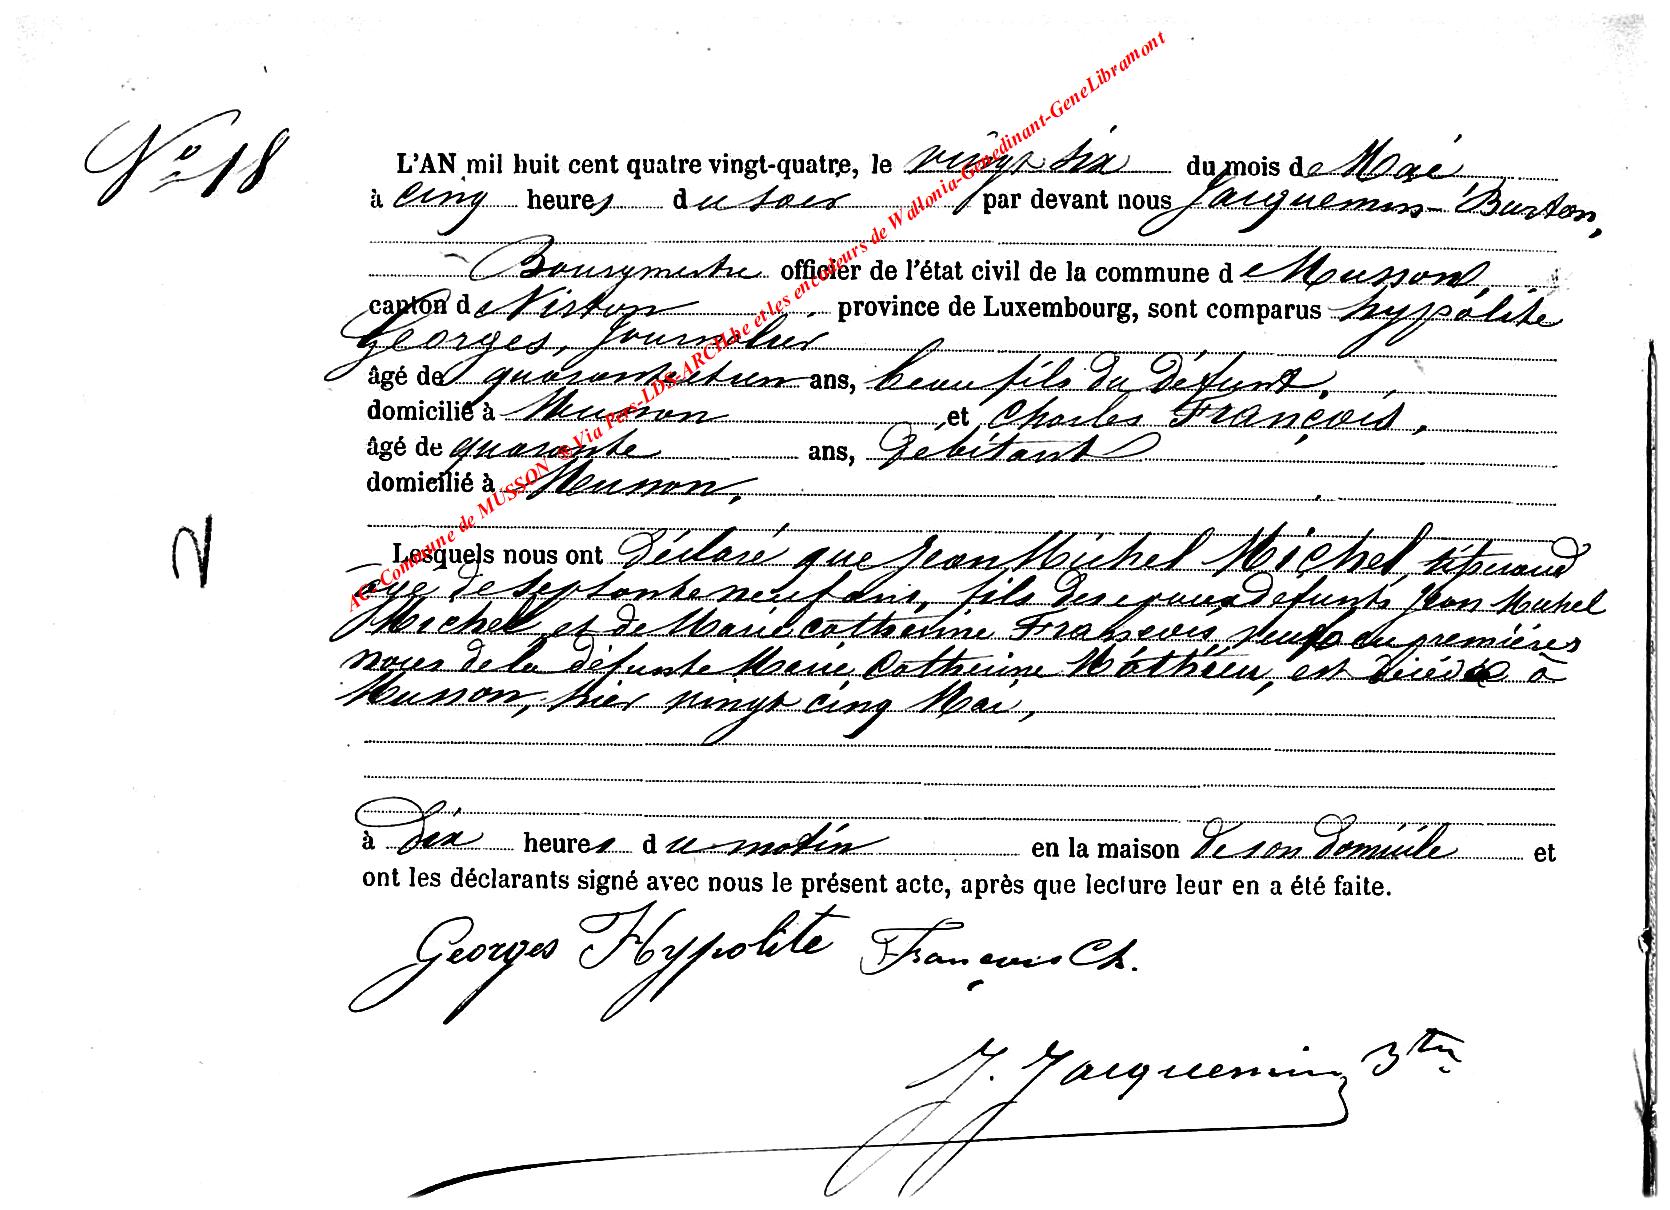 No 18
L'AN mil huit cent quatre vingt-quatre, le vingt six du mois de Mai
à cinq heures du soir par devant nous Jacquemin-Burton,
Bourgmestre officier de l'état civil de la commune de Musson,
canton de Virton province de Luxembourg, sont comparus hypolite
Georges, Journalier
âgé de quarante et un ans, beau fils du défunt,
domicilié à Musson et Charles François,
âgé de quarante ans, Débitant
domicilié à Musson,
Lesquels nous ont déclaré que Jean Michel Michel,
âgé de septante neuf ans, fils des epoux defunts Jean Michel
Michel et de Marie Catherine François veuf en premières
noces de la défunte Marie Catherine, est décédé à
Musson, hier vingt cinq Mai,
à dix heures du matin en la maison de son domicile et
ont les déclarants signé avec nous le présent acte, après que lecture leur en a été faite.
Georges Hypolite François Ch.
J. Jacquemin Btn
2
AC-Commune de MUSSON @Via Pers-LDS-ARCH.be et les encodeurs de Wallonia-Genedinant-GeneLibramont